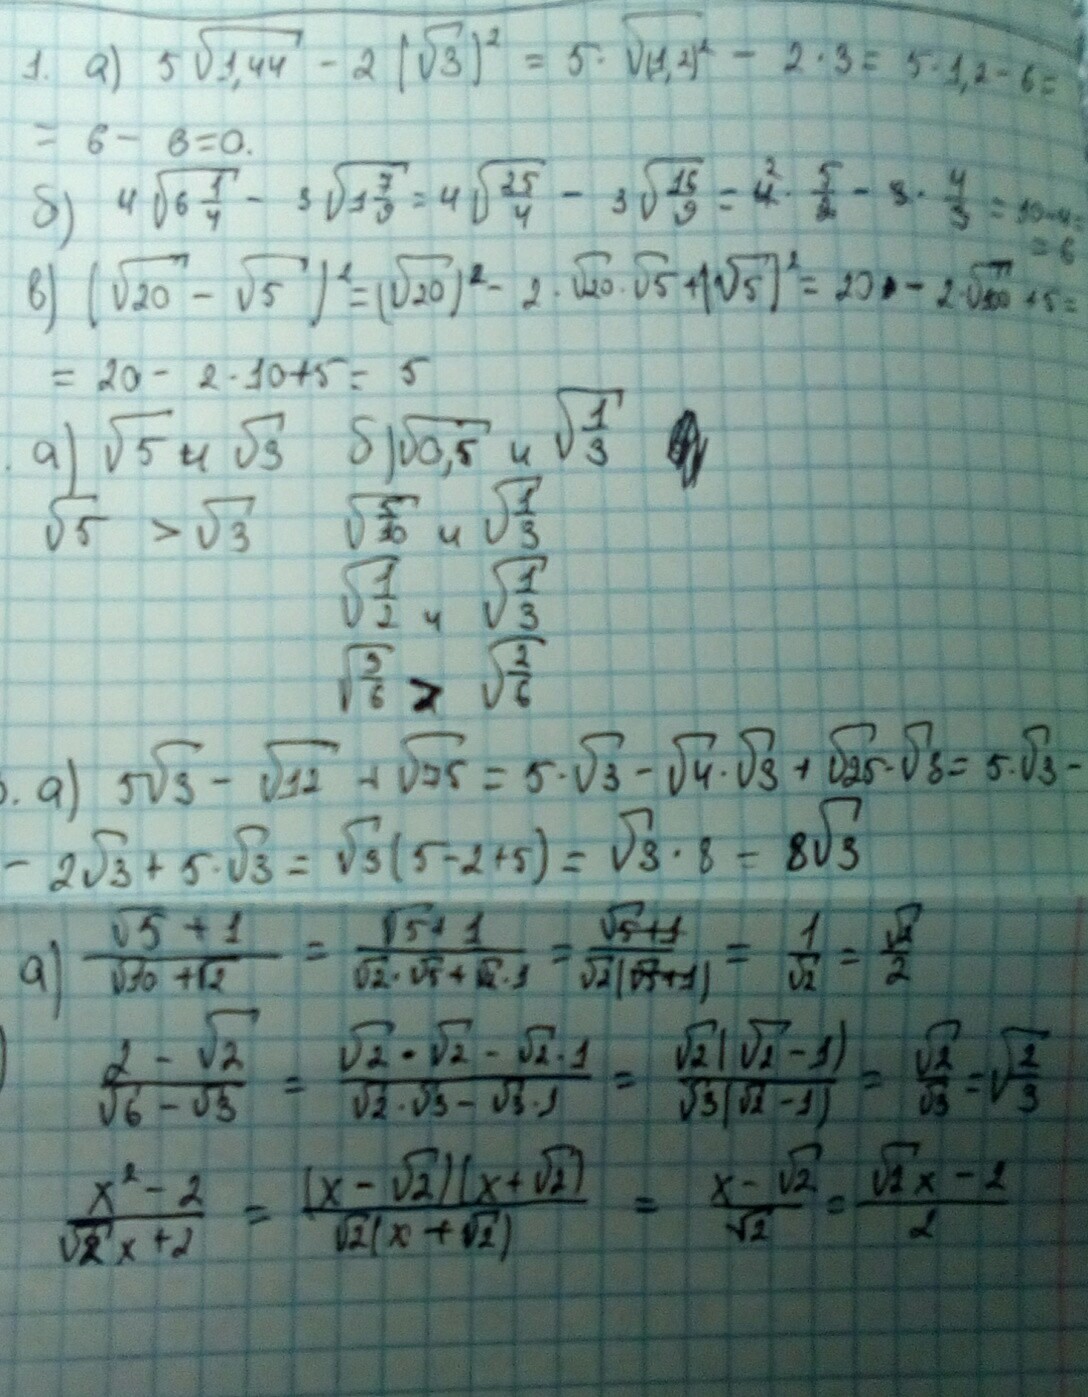 1. а) 5√1,44 - 2(√3)² = 5·√(1,2)² - 2·3 = 5·1,2 - 6 =
= 6 - 6 = 0.
б) 4√6 1/4 - 3√1 7/9 = 4√25/4 - 3√16/9 = 4·5/2 - 3·4/3 = 10-4=
= 6
в) (√20 - √5)² = (√20)² - 2·√20·√5 + (√5)² = 20 - 2·√100 + 5 =
= 20 - 2·10+5 = 5
. а) √5 и √3 б) √0,5 и √1/3
√5 > √3 √5/10 и √1/3
√1/2 и √1/3
√3/6 > √2/6
. а) 5√3 - √12 + √75 = 5·√3 - √4·√3 + √25·√3 = 5·√3 -
- 2√3 + 5·√3 = √3(5-2+5) = √3·8 = 8√3
а) √5+1/√10+√2 = √5+1/√2·√5+√2·1 = √5+1/√2(√5+1) = 1/√2 = √2/2
) 2-√2/√6-√3 = √2·√2-√2·1/√2·√3-√3·1 = √2(√2-1)/√3(√2-1) = √2/√3 = √2/3
x²-2/√2x+2 = (x-√2)(x+√2)/√2(x+√2) = x-√2/√2 = √2x-2/2